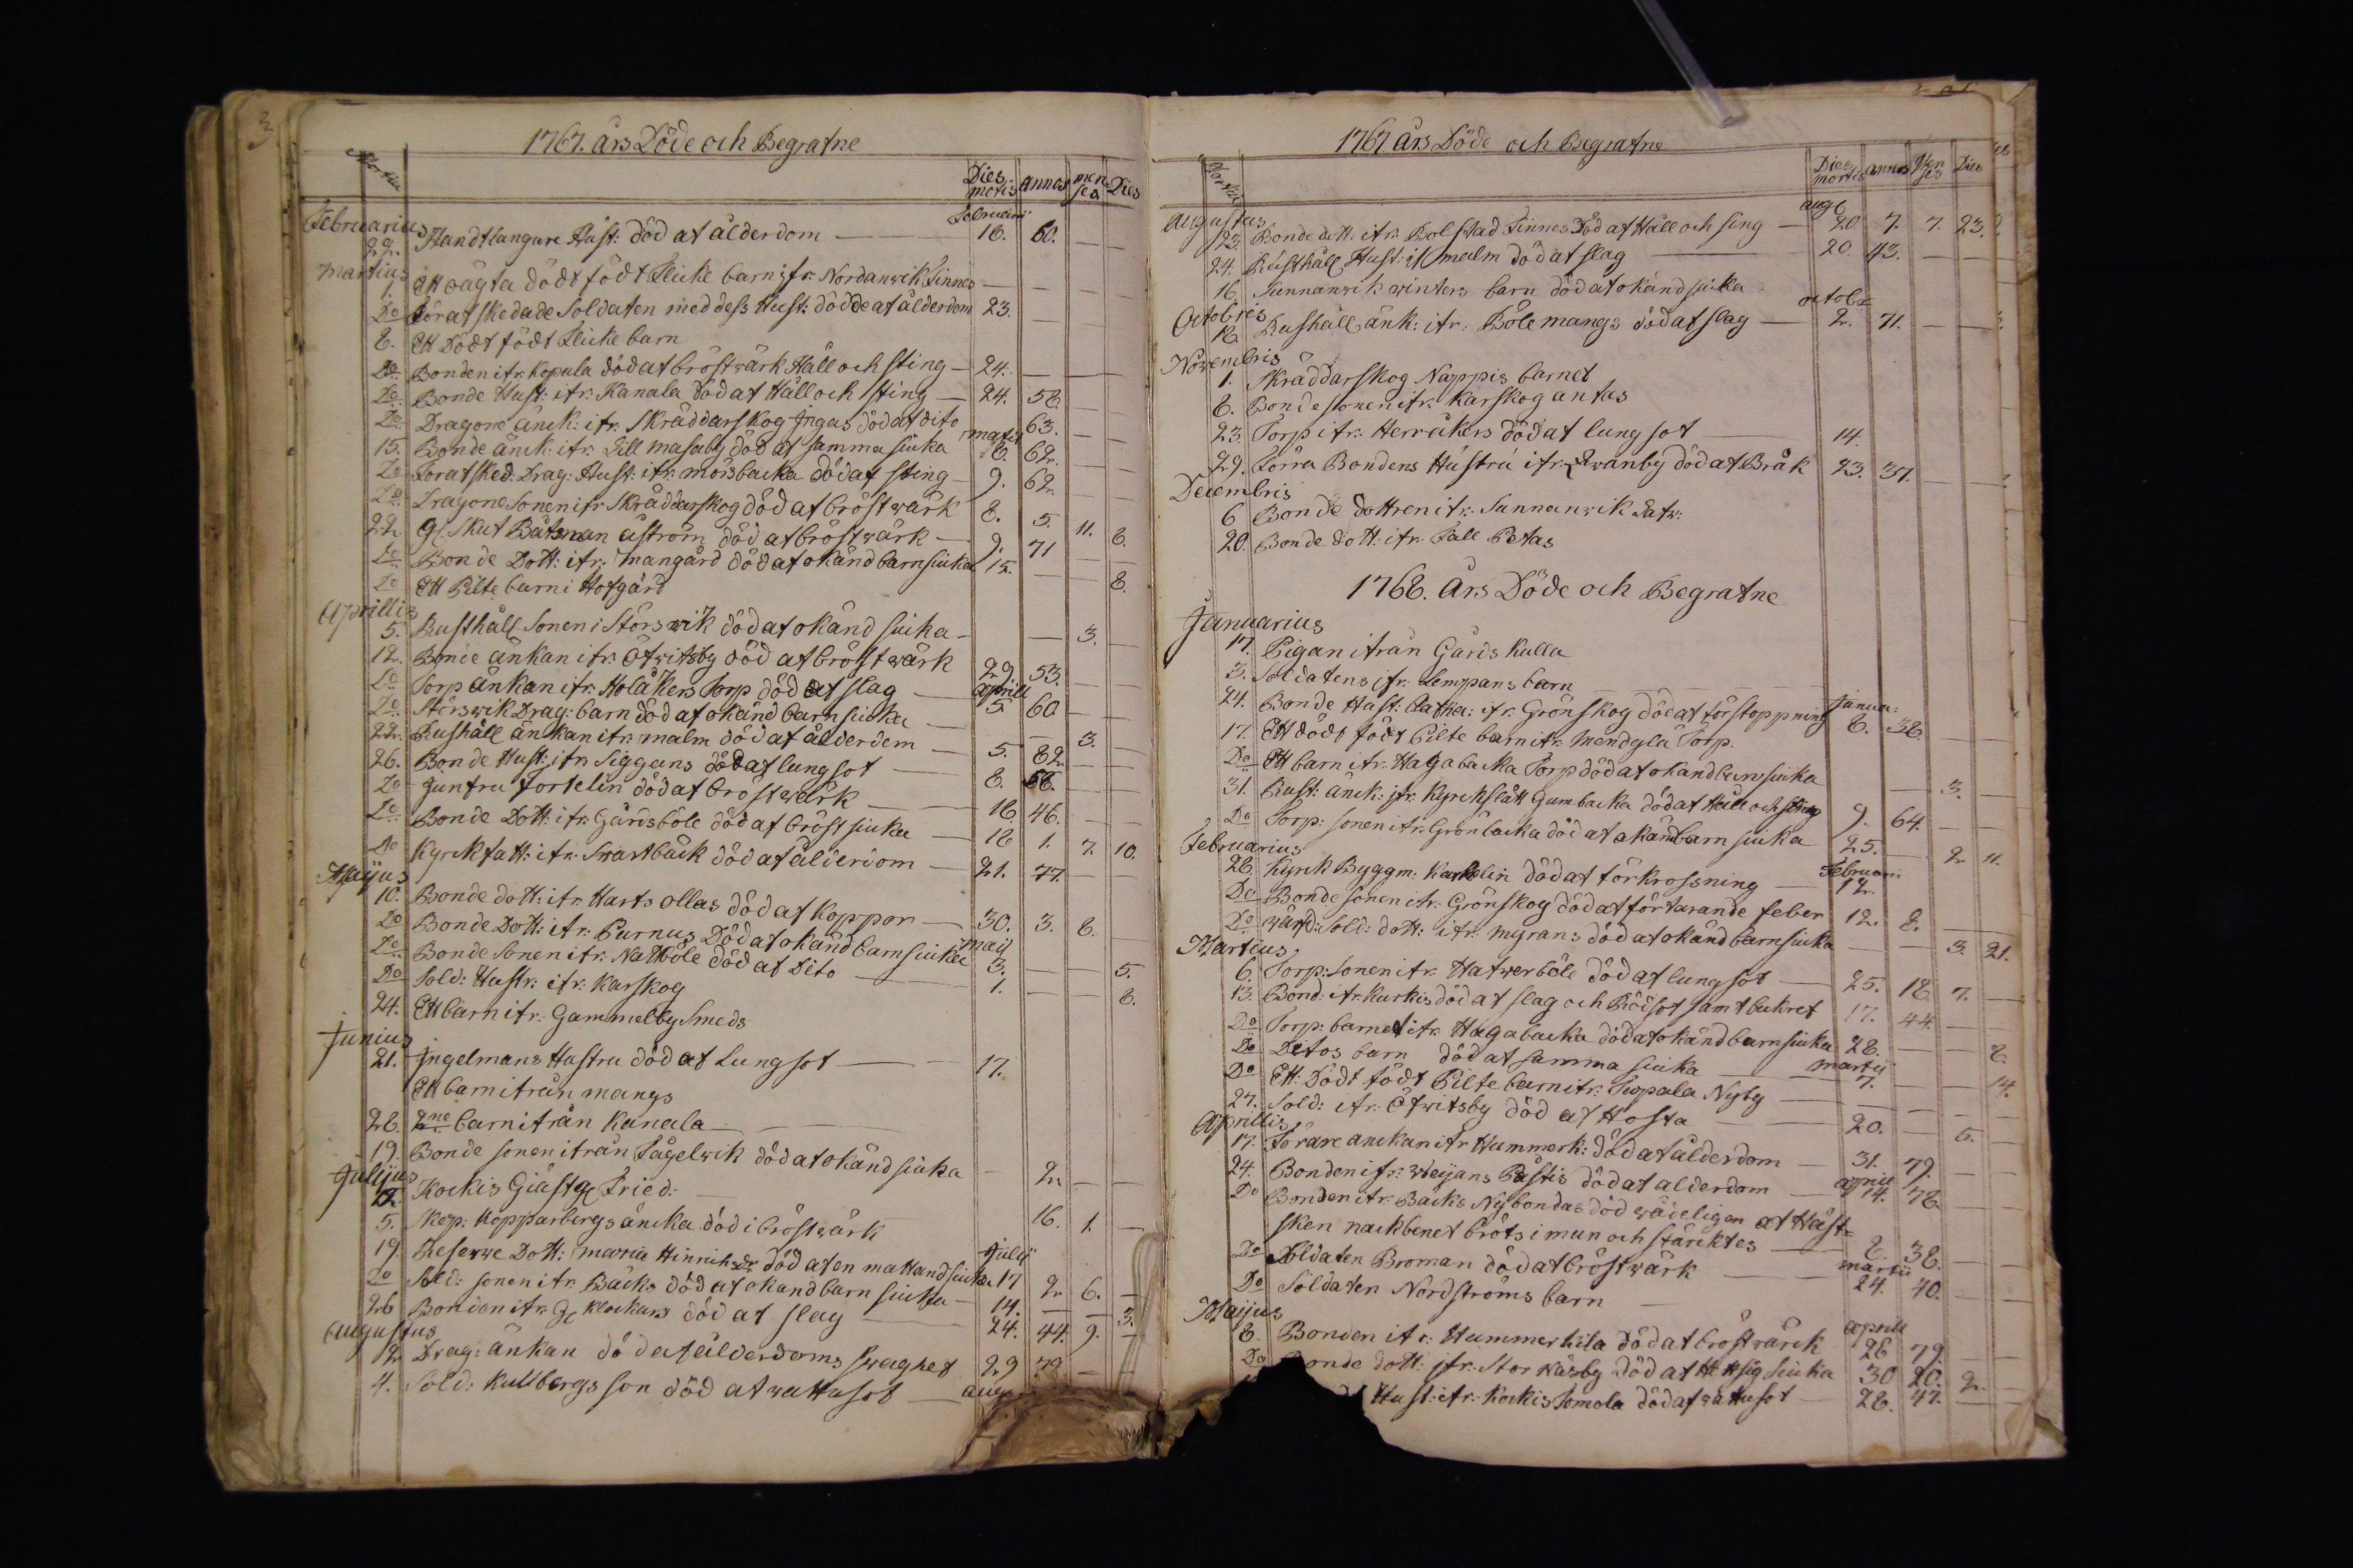 1767. års Döde och Begrafne
Dies mortis annos menses Dies
Februarius Februarii
22. Handtlangare Hust: död af ålderdom 18. 60.
Martius
1. Ett oägta dödt födt flicke barn ifr. Nordanwik Finnes
Do Förafskedade Soldaten med dess Hust: dödde af ålderdom 23.
8. Ett Dödt födt flicke barn
Do Bonden ifr. Kopula död af bröstwärk Håll och sting 24.
Do Bonde Hust: ifr. Kanala död af Håll och sting 24. 58.
Do Dragone änck: ifr. Skräddarskog Ingas död af dito 63.
15. Bonde änck: ifr. Lill masaby död af samma siuka martii 6. 62.
Do Forafsked: Drag: Hust: ifr. morsbacka död af sting 9. 62.
Do Dragone Sonen ifr Skräddarskog död af bröstwärk 8. 5. 11. 8.
22. Skut Båtsman åström död af bröstwärk 9. 71
Do Bonde Dott: ifr. mangård död af okänd barnsiuka 15. 8.
Do Ett Pilte barn i Hofgård
Aprillis
5. Rusthåll Sonen i Störswik död af okänd siuka 3.
12. Bonde änkan ifr. Ofwitsby död af bröstwärk 29 53.
Do Torp änkan ifr. Holåkers Torp död af slag Aprill 5 60
Do Störswik Drag: barn död af okänd barnsiuka 3.
22. Rushåll änkan ifr. malm död af ålderdom 5. 82
26. Bonde Hust: ifr. Siggans död af lungsot 8. 58.
Do Junfru Forselin död af bröstwärk 16. 46.
Do Bonde Dott: ifr. Gårdsböle död af bröst siuka 18 1. 7. 10.
Do Kyrckfatt: ifr. Swartbäck död af ålderdom 21. 77.
Maijus
10. Bonde dott: ifr. Harts ollas död af Koppor 30. 3. 8.
Do Bonde Dott: ifr. Purnus Död af okänd barnsiuka maij 3. 5.
Do Bonde Sonen ifr. Nattböle död af Dito 1. 8.
Do Sold: Hustr. ifr. Karskog
24. Ett barn ifr. Gammelby Smeds
Junius
21. Ingelmans Hustru död af Lungsot 17.
Ett barn ifrån mangs
28. 2ne barn ifrån Kanala
19. Bonde sonen ifrån Fågelwik död af okänd siuka 2.
Julijus
12. Kockis Giästg Fried: 16. 1.
5. Skep: Kopparbergs äncka död i bröstwärk
19. Reserwe Dott: maria Hinrichsdr död af en mattand siuka Julii 17 2 6.
Do Sold: sonen ifr. Bäcks död af okänd barn siuka 14. 3.
26 Bonden ifr. Gl Klockars död af slag 24. 44. 9.
Augustus
2 Drag: änkan död af ålderdoms swaghet 29 79
4. Sold: Kullbergs son död af wattusot aug
1767 års Döde och Begrafne
Dies mortis annos Menses Dies
Augustus aug
23. Bonde dott: ifr. Bolstad Finnes Död af Håll och sting 20 7. 7. 23.
24. Rusthåll Hust: if malm död af slag 20. 43.
16. Sunnanwik winters barn död af okänd siuka
Octobris octob
12. Rushåll änk: ifr. Böle mangs död af slag 2. 71.
Novembris
1. Skräddarskog Nappis barnet
8. Bonde sonen ifr. Karskog antas
23. Torp ifr. Herråkers död af lungsot 14.
29. Förra Bondens Hustru ifr. Ewanby död af Bråk 23. 37.
Decembris
6 Bonde dottren ifr. Sunnanwik Satw.
20. Bonde dott: ifr. Fall Petas
1768. Års Döde och Begrafne
Januarius
17. Pigan ifrån Gårds Kulla
3. Soldatens ifr. Lempans barn
24. Bonde Hust: Catha: ifr. Grönskog död af förstoppning Janua: 8. 38.
17. Ett dödt födt Pilte barn ifr. Mendgla Torp.
Do Ett barn ifr. Hagabacka Torp död af okänd barnsiuka 3.
31. Rust: änck: ifr. Kyrckslätt Gumbacka död af Håll och sting 9. 64.
Do Torp: sonen ifr. Grönbacka död af okänd barn siuka 25. 2 11.
Februarius
28. Kyrck Byggm. Karkelin död af förkrossning Februarii 12.
Do Bonde sonen ifr. Grönskog död af förtarande feber 12. 8.
Do wärfd: sold: dott: ifr. myrans död af okänd barnsiuka 3. 21.
Martius
6. Torp: Sonen ifr. Hatwerböle död af lungsot 25. 18 7.
13. Bond: ifr. Kurkis död af slag och Rödsot samt bukref 17. 44.
Do Torp: barnet ifr. Hagabacka död af okänd barnsiuka 28. 8.
Do Ditos barn död af samma siuka martii 7. 14.
Do Ett: Dödt födt Pilte barn ifr. Sepala Nyby
27. Sold: ifr. Ofwitsby död af Hosta 20. 5.
Aprillis
17. Förare anckan ifr Hummerk: död af ålderdom 31. 79.
24. Bonden ifr: Weijans Bastis död af ålderdom april 14. 78
Do Bonden ifr. Backs Nybondas död wådeligen af Häst=
sken nackbenet bröts i mun och stärcktes 8. 38.
Do Soldaten Broman död af bröstwärk martii 24. 40.
Do Soldaten Nordströms barn
Maijus
8. Bonden ifr. Hummerkila död af bröstwärck aprill 26 79.
Do Bonde dott: ifr. Stor Wäsby död af Hettsig siuka 30 20. 2.
Hust: ifr. Kockis Somola död af wattusot 28. 47.